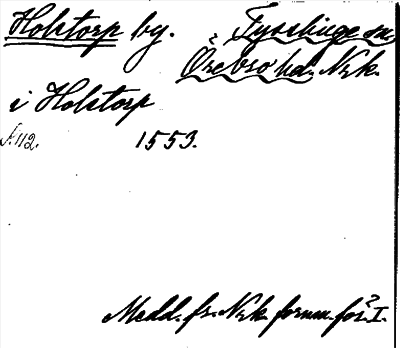 Holstorp by. Tysslinge sn,
Örebro hd. Nrk.
i Holstorp
s. 112. 1553.
Medd. fr. Nrk fornm. för. I.